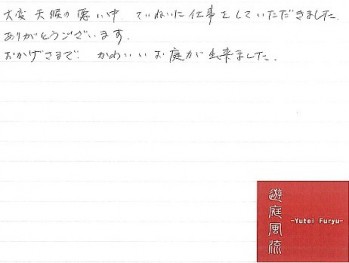 大変 天候の悪い中 ていねいに仕事をしていただきました。
ありがとうございます。
おかげさまで、かわいいお庭が出来ました。
遊庭風流
-Yutei Furyu-